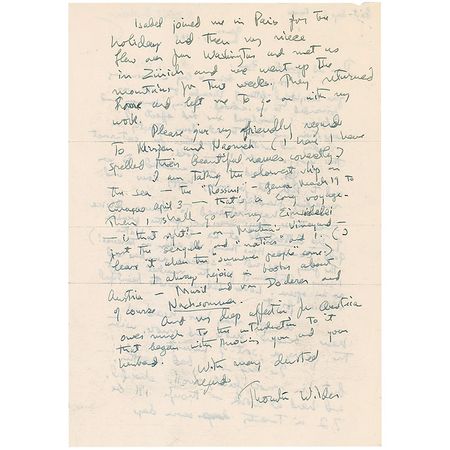 Isabel joined me in Paris for the
holiday and then my niece
flew over from Washington and met us
in Zürich and we went up the
mountains for two weeks. They returned
home and left me to go on with my
work.
Please give my friendly regards
to and (I hope I have
spelled their beautiful names correctly.)
I am taking the slowest ship on
the sea — the "Rossini" — Genoa March 19 to
Curaçao April 3 — that's a long voyage.
Then I shall go
— is that right? — on Martha's Vineyard —
just the seagulls and "natives" and I. (I
leave it when the "summer people" come)
I always rejoice in books about
Austria — Musil and von Doderer and
of course Nachsommer.
And my deep affection for Austria
owes much to the introduction to it
that began with knowing you and your
husband.
With many devoted
regards
Thornton Wilder